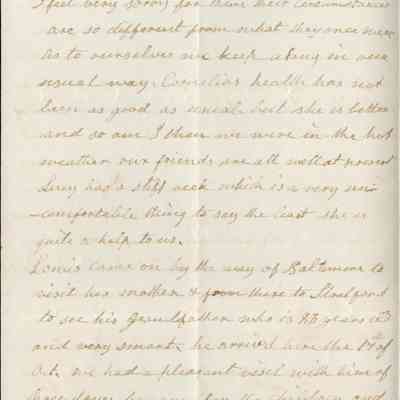 I feel very sorry for them their circumstances
are so different from what they once were
as to ourselves we keep along in our
usual way. Cornelias health has not
been as good as usual but she is better
and so am I than we were in the hot
weather our friends are all well at present
Lucy has a stiff neck which is a very un-
-comfortable thing to say the least she is
quite a help to us.
Louis came on by the way of Baltimore to
visit his mother & from there to Stratford
to see his Grandfather who is 83 years old
and very smart. he arrived here the 17th of
Oct. we had a pleasant visit with him of
three days he